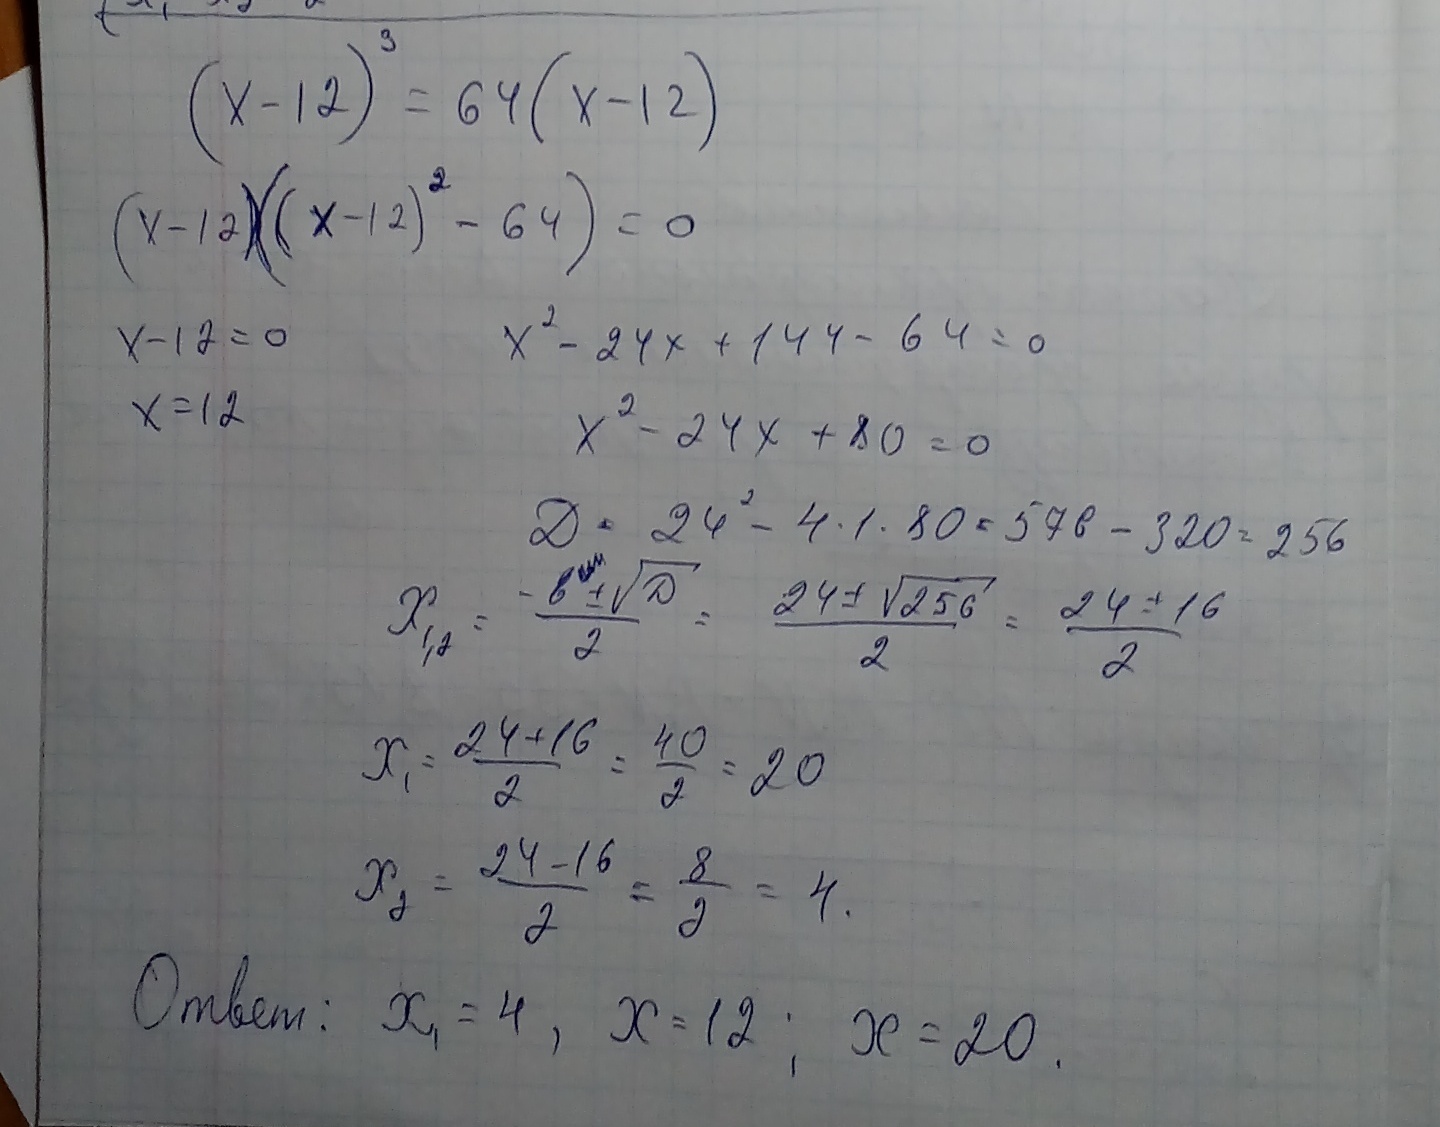 (x-12)³ = 64(x-12)
(x-12)((x-12)² - 64) = 0
x-12=0 x² - 24x + 144 - 64 = 0
x=12 x² - 24x + 80 = 0
D = 24² - 4·1·80 = 576 - 320 = 256
x₁,₂ = (-b ± √D)/2 = (24 ± √256)/2 = (24 ± 16)/2
x₁ = (24+16)/2 = 40/2 = 20
x₂ = (24-16)/2 = 8/2 = 4.
Ответ: x₁ = 4, x = 12; x = 20.